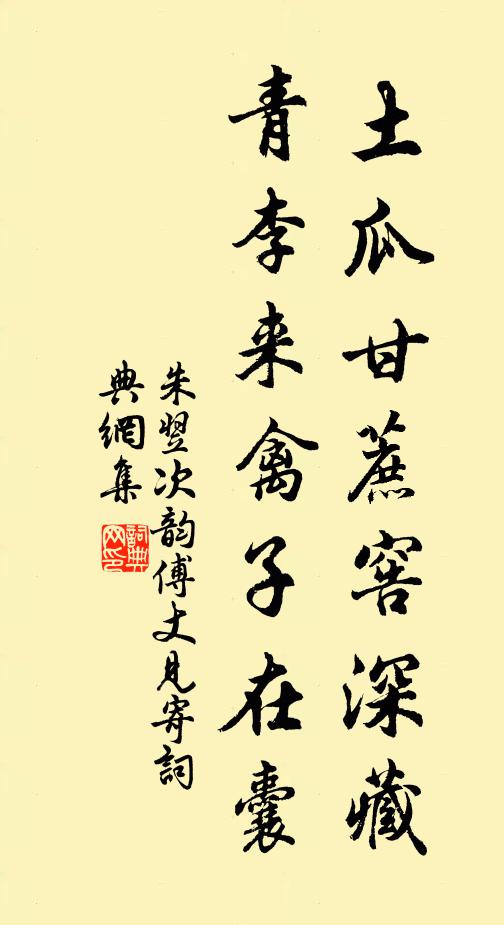 土瓜甘蔗窖深藏
青李来禽子在囊
朱翌次韵傅丈見寄詞
典網集
詞典
网印